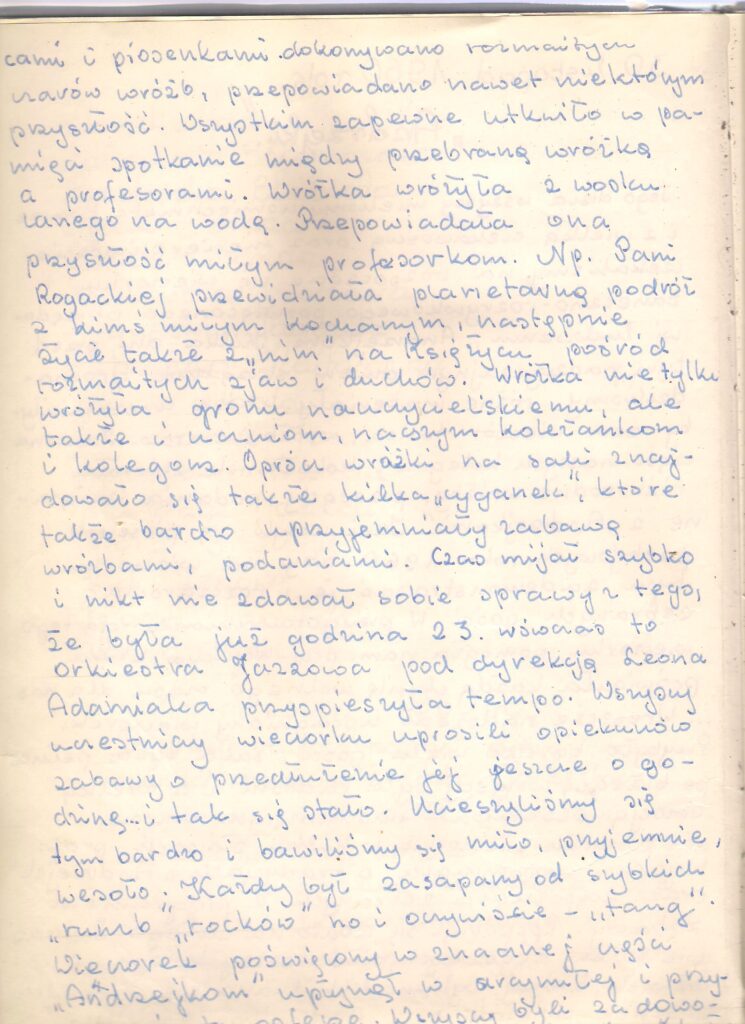 cami i piosenkami dokonywano rozmaitych
czarów wróżb, przepowiadano nawet niektórym
przyszłość. Wszystkim zapewne utkwiło w pa-
mięci spotkanie między przebraną wróżką
a profesorami. Wróżka wróżyła z wosku
lanego na wodę. Przepowiadała ona
przyszłość miłym profesorkom. Np. Pani
Rogackiej przewidziała planetarną podróż
z kimś miłym kochanym, następnie
życie także z „nim” na Księżycu pośród
rozmaitych zjaw i duchów. Wróżka nie tylko
wróżyła gronu nauczycielskiemu, ale
także i uczniom, naszym koleżankom
i kolegom. Oprócz wróżki na sali znaj-
dowało się także kilka „cyganek”, które
także bardzo uprzyjemniały zabawę
wróżbami, podaniami. Czas mijał szybko
i nikt nie zdawał sobie sprawy z tego,
że była już godzina 23. wówczas to
orkiestra Jazzowa pod dyrekcją Leona
Adamiaka przyspieszyła tempo. Wszyscy
uczestnicy wieczorku uprosili opiekunów
zabawy o przedłużenie jej jeszcze o go-
dzinę...i tak się stało. Ucieszyliśmy się
tym bardzo i bawiliśmy się miło, przyjemnie,
wesoło. Każdy był zasapany od szybkich
„rumb” „rocków” no i oczywiście – „tang”.
Wieczorek poświęcony w znacznej części
„Andrzejkom” upłynął w arcymiłej i przy-
Wszyscy byli zadowo-